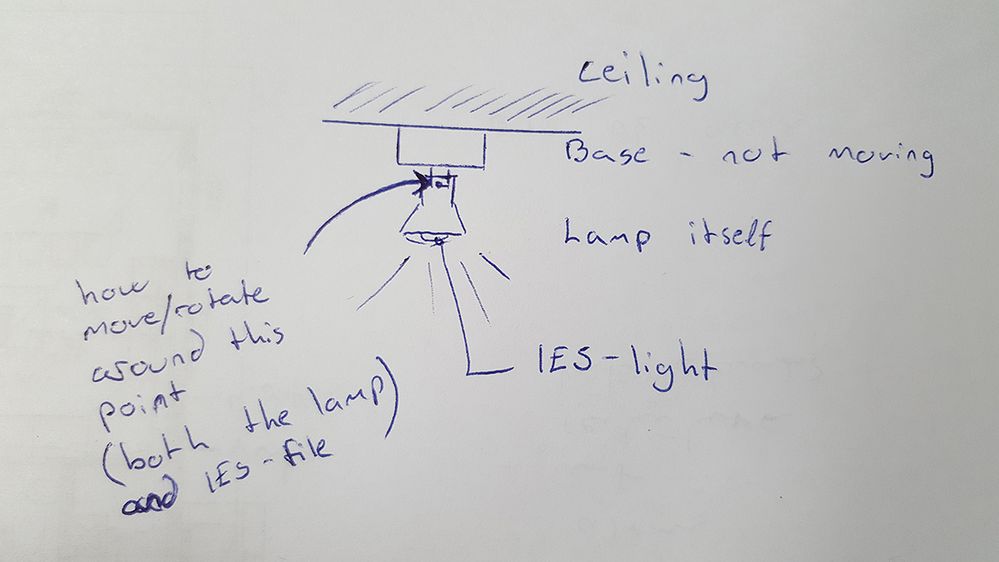 Ceiling
Base - not moving
Lamp itself
how to
move/rotate
around this
point
(both the lamp)
and IES-file
IES-light